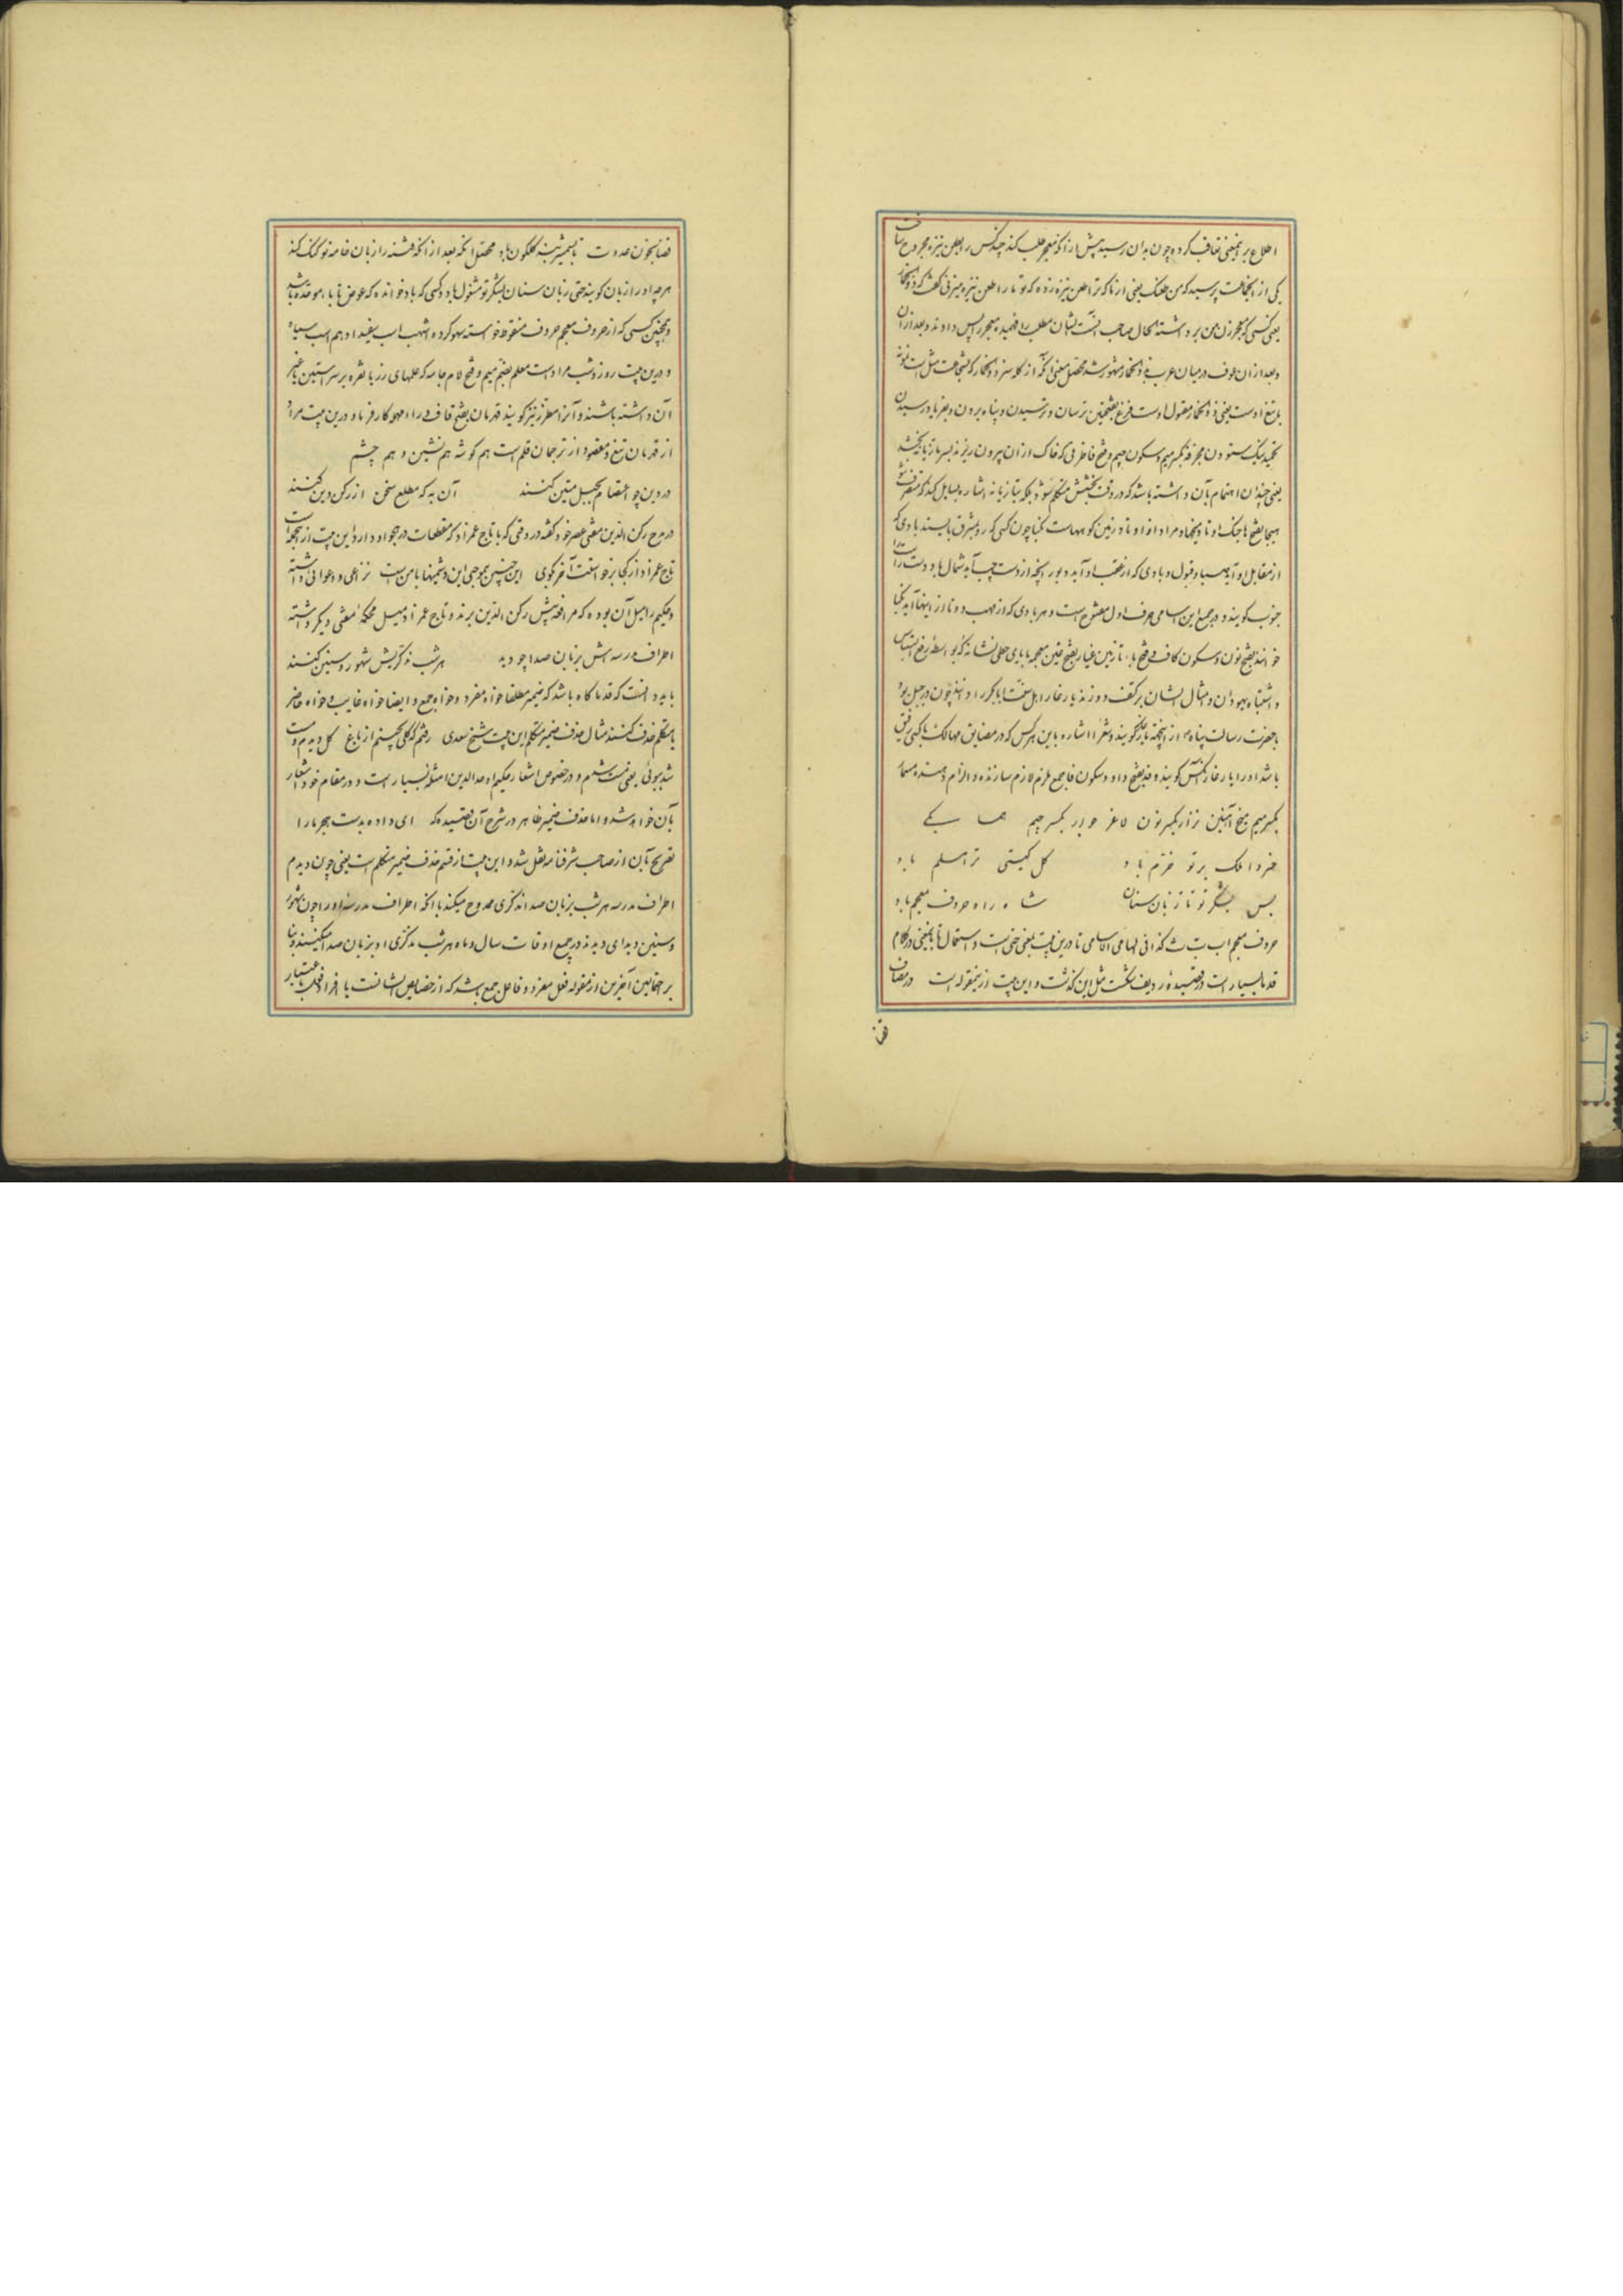 اطلاع بر اینمعنی تعاقب کرده چون بدان رسید پیش از آنکه معجر طلب کند چند کس را بطعن نیزه مجروح ساخت
یکی از آنجماعت پرسید که من طعنک یعنی از تا که ترا طعن نیزه زده که تو ما را طعن نیزه میزنی گفت که ذو الخمار
یعنی کسی که معجر زن من برداشته الحال صاحب آنست ایشان مطلب را فهمیده معجر را پس دادند و بعد ازان
و بعد ازان عوف در میان عرب بذو الخمار مشهور شد محصل معنی آنکه از کله سزد ذو الخمار که بشجاعت مثل است
تیغ اوست یعنی ذو الخمار مقتول اوست فزع بفتحتین ترسان و ترسیدن و پناه بردن و بفریاد رسیدن
بکسر میم و سکون جیم و فتح فا ظرفی که خاک از ان بیرون ریزند
یعنی چندان اهتمام بان داشته باشد که در وقت بخشش متکلم نشود بلکه بتازیانه اشاره
هیجا بفتح ها جنگ اوتاد میخها و مراد از اوتاد زمین کوههاست نکبا چون کسی که رو بمشرق بایستد بادی که
از مقابل او آید صبا و قبول و بادی که از عقب او آید دبور و آنچه از دست چپ آید شمال و دست راست
جنوب گویند و در جمیع این اسامی حرف اول مفتوح است و هر بادی که از مهب دو تا از اینها آید نکبا
خوانند بفتح نون و سکون کاف و فتح با تازنین غیار بفتح غین معجمه با یای حطی نشانه که بواسطه رفع التباس
و اشتباه یهودان و امثال ایشان بر کتف دوزند یار غار اهل سنت ابا بکر را دانند چون در جبل ثور
با حضرت رسالت پناه ازینجهت یار غار گویند و شعرا اشاره باین هر کس که در مضایق مهالک با کسی رفیق
باشد او را یار غار آنکس گویند وفد بفتح واو و سکون فا جمع ملزم لازم سازنده و الزام دهنده مسمار
بکسر میم میخ آهنین نزار بکسر نون لاغر بکسر جیم همسایگی
خسروا ملک بر تو خرم باد کل گیتی ترا مسلم باد
پس بشکر تو تا زبان سنان شاه راه حروف معجم باد
حروف معجم اب ت ث کذا فی السامی الاسامی تا درین بیت بمعنی حتی است و استعمال تا باینمعنی در کلام
قدما بسیار است در قصیدهٔ ردیف شکست مثل این گذشت و این بیت از ینمقوله است در مصاف
قضا بخون عدوت تا بشمشیر بیشه گلگون باد محصل آنکه بعد از آنکه فتنه را زبان خامه تو گنگ کند
هرچه او را زبان گویند حتی زبان سنان بشکر تو مشغول باد و کسی که باد خوانده که عوض تا با موحده باشد
و همچنین کسی که از حروف معجم حروف منقوط خواسته سهو کرده اشهب اسب سفید ادهم اسب سیاه
و درین بیت روز و شب مراد است معلم بضم میم و فتح لام جامه که علمهای زر یا نقره بر سر آستین یا غیر
آن داشته باشند و آنرا مطرز نیز گویند قهرمان بفتح قاف و راء مهمله کارفرما و درین بیت مراد
از قهرمان تیغ و مقصود از ترجمان قلم است هم گوشه هم نشین و هم چشم
در دین چو اعتصام بحبل متین کنند آن به که مطلع سخن از رکن دین کنند
در مدح رکن الدین مفتی عصر خود گفته در وقتی که با تاج عمزاد که مقطعات در هجو او دارد این بیت از آنجمله است
تاج عمزاد از کجا برخواست آخر گوی این چنین بموجبی این دشمنیها با من است نزاعی و دعوائی داشته
و حکیم را میل آن بوده که مرافعه پیش رکن الدین برند و تاج عمزاد میل محکمهٔ مفتی دیگر داشته
اطراف مدرسه اش بزبان صدا چو دید هر شب مذکریش شهور و سنین کنند
باید دانست که قدما گاه باشد که ضمیر مطلقا خواه مفرد و خواه جمع و ایضا خواه غایب و خواه حاضر
یا متکلم حذف کنند مثال حذف ضمیر متکلم این بیت شیخ سعدی رفتم که گلی بچینم از باغ گل دیدم و مست
شد ببوئی یعنی مست شدم و در خصوص اشعار حکیم اوحد الدین امثله بسیار است و در مقام خود اشعار
بآن خواهد شد و اما حذف ضمیر ظاهر در شرح آن قصیده که ای داده بدست هجر ما را
تصریح بآن از صاحب شرفنامه نقل شد و این بیت از قسم حذف ضمیر متکلم است یعنی چون دیدم
اطراف مدرسه هر شب بزبان صدا مذکری ممدوح میکند با آنکه اطراف مدرسهٔ او را چون شهور
و سنین دیدای دیدند در جمیع اوقات سال و ماه هر شب مذکری او بزبان صدا میکنند و بنا
بر احتمالین آخرین از مقوله فعل مفرد و فاعل جمع باشد که از خصایص ایشانست یا افراد فعل باعتبار